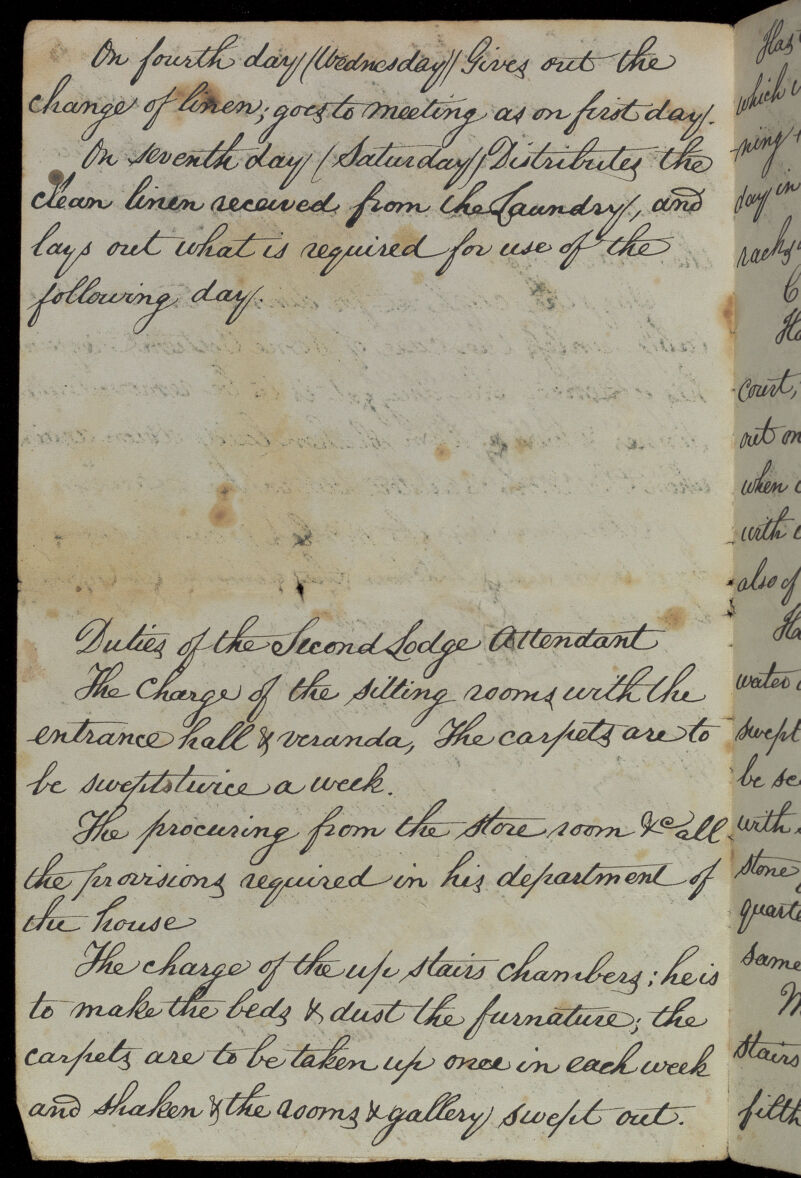 On fourth day (Wednesday) Gives out the
change of linen; goes to meeting as on first day.
On seventh day (Saturday) Distributes the
clean linen received from the Laundry, and
lays out what is required for use of the
following day.
Duties of the Second Lodge Attendant
The Charge of the sitting rooms with the
entrance hall & veranda, The carpets are to
be swept twice a week.
The procuring from the store room &c all
the provisions required in his department of
the house
The charge of the up stairs chambers; he is
to make the beds & dust the furnature; the
carpets are to be taken up once in each week
and shaken & the rooms & gallery swept out.
Has
which
ning
day in
racks
court,
out on
when
with
also of
water
swept
be
with
stone
same
stairs
filth